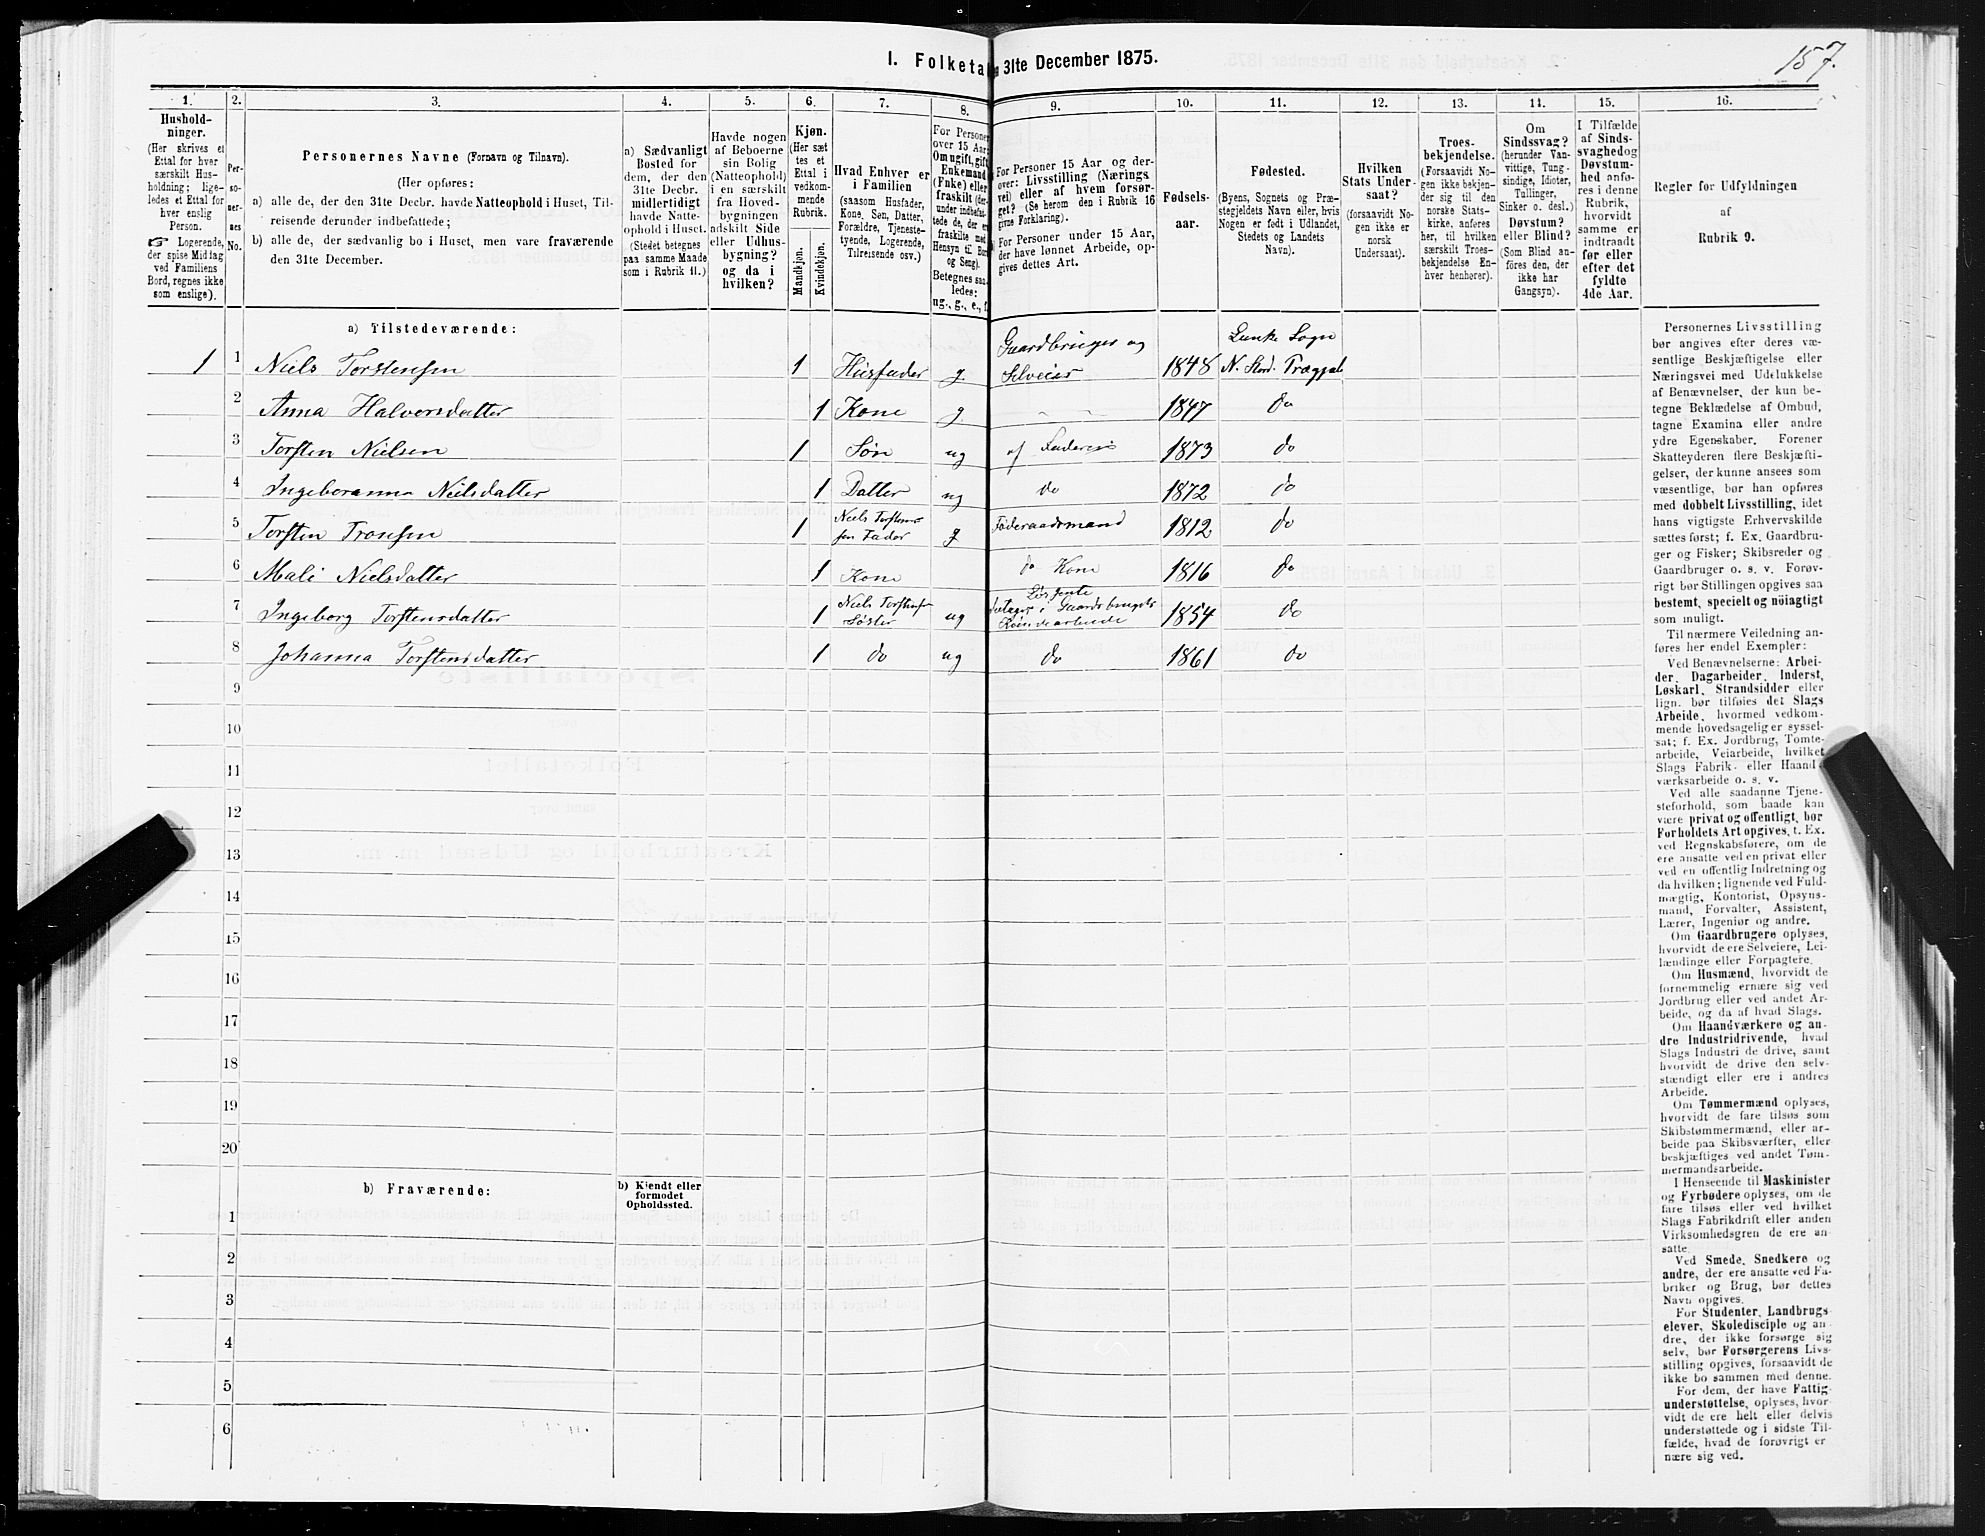 157.
I. Folketa
n 31te December 1875.
1.
2.
3.
4.
5.
6.
7.
8.
9.
10.
11.
12.
13.
14.
15.
16.
Hushold-
ninger.
(Her skrives et
Ettal for hver
særskilt Hus-
holdning; lige-
ledes et Ettal for
hver enslig
Person.
☞ Logerende,
der spise Middag
ved Familiens
Bord, regnes ikke
som enslige).
Per-
so-
ner-
nes
No.
Personernes Navne (Fornavn og Tilnavn).
(Her opføres:
a) alle de, der den 31te Decbr. havde Natteophold i Huset, Til-
reisende derunder indbefattede;
b) alle de, der sædvanlig bo i Huset, men vare fraværende
den 31te December.
a) Sædvanligt
Bosted for
dem, der den
31te Decbr.
midlertidigt
havde Natte-
ophold i Huset.
(Stedet betegnes
paa samme Maade
som i Rubrik 11.)
Havde nogen
af Beboerne
sin Bolig
(Natteophold)
i en særskilt
fra Hoved-
bygningen
adskilt Side
eller Udhus-
bygning?
og da i
hvilken?
Kjøn.
(Her sæt
tes et
Ettal i
vedkom-
mende
Rubrik.
Mandkjøn.
Kvindekjøn.
Hvad Enhver er
i Familien
(saasom Husfader,
Kone, Søn, Datter,
Forældre, Tjeneste-
tyende, Logerende,
Tilreisende osv.)
For Personer
over 15 Aar:
Om ugift, gift,
Enkemand
(Enke) eller
fraskilt (der-
under indbefat-
tede de, der er
fraskilte med
Hensyn til Bord
og Seng).
Betegnes saa-
ledes:
ug., g., e., f.
For Personer 15 Aar og der-
over: Livsstilling (Nærings
vei) eller af hvem forsør-
get? (Se herom den i Rubrik 16
givne Forklaring).
For Personer under 15 Aar,
der have lønnet Arbeide, op-
gives dettes Art.
Fødsels-
aar.
Fødested.
(Byens, Sognets og Præ-
stegjeldets Navn eller, hvis
Nogen er født i Udlandet,
Stedets og Landets
Navn).
Hvilken
Stats Under-
saat?
(forsaavidt No-
gen ikke er
norsk
Undersaat).
Troes-
bekjendelse.
(Forsaavidt No-
gen ikke bekjen-
der sig til den
norske Stats-
kirke, anføres
her, til hvilken
særskilt Troes-
bekjendelse En-
hver henhører).
Om
Sindssvag?
(herunder Van-
vittige, Tung-
sindige, Idioter,
Tullinger,
Sinker o. desl.)
Døvstum?
eller Blind?
(Som Blind an-
føres den, der
ikke har
Gangsyn).
I Tilfælde
af Sinds-
svaghed og
Døvstum-
hed anfø-
res i denne
Rubrik,
hvorvidt
samme er
indtraadt
før eller
efter det
fyldte
4de Aar.
Regler for Udfyldningen
af
Rubrik 9.
a) Tilstedeværende:
1 1 Niels Torstensen 1 Husfader g. Gaardbruger og Selveier 1848 Lunke Sogn N. Stord. Præggel
2 Anna Halvorsdatter 1 Kone g. " " 1847 do
3 Torsten Nielsen 1 Søn ug af Faderen 1873 do
4 Ingeboranna Nielsdatter 1 Datter ug do 1872 do
5 Torsten Tronsen 1 Niels Torstensen Fader g Føderaadsmand 1812 do
6 Mali Nielsdatter 1 Kone do Kone 1816 do
7 Ingeborg Torstensdatter 1 Niels Torstens Søster ug deltager i Gaardsbrugets 1854 do
8 Johanna Torstensdatter 1 do ug do 1861 do
9
10
11
12
13
14
15
16
17
18
19
20
b) Fraværende:
b) Kjendt eller
formodet
Opholdssted.
1
2
3
4
5
6
Personernes Livsstilling
bør angives efter deres væ-
sentlige Beskjæftigelse eller
Næringsvei med Udelukkelse
af Benævnelser, der kun be-
tegne Beklædelse af Ombud,
tagne Examina eller andre
ydre Egenskaber. Forener
Skatteyderen flere Beskjæfti-
gelser, der kunne ansees som
væsentlige, bør han opføres
med dobbelt Livsstilling, idet
hans vigtigste Erhvervskilde
sættes først; f. Ex. Gaardbru-
ger og Fisker; Skibsreder og
Gaardbruger o. s. v. Forøv-
rigt bør Stillingen opgives saa
bestemt, specielt og nøiagtigt
som muligt.
Til nærmere Veiledning an-
føres her endel Exempler:
Ved Benævnelserne: Arbei-
der, Dagarbeider, Inderst,
Løskarl, Strandsidder eller
lign. bør tilføies det Slags
Arbeide, hvormed vedkom-
mende hovedsagelig er syssel-
sat; f. Ex. Jordbrug, Tomte-
arbeide, Veiarbeide, hvilket
Slags Fabrik- eller Haand-
værksarbeide o. s. v.
Ved alle saadanne Tjene-
steforhold, som baade kan
være privat og offentligt, bør
Forholdets Art opgives, t. Ex.
ved Regnskabsførere, om de
ere ansatte ved en privat eller
ved en offentlig Indretning og
da hvilken; lignende ved Fuld-
mægtig, Kontorist, Opsyns-
mand, Forvalter, Assistent,
Lærer, Ingeniør og andre.
Om Gaardbrugere oplyses,
hvorvidt de ere Selveiere, Lei-
lændinge eller Forpagtere.
Om Husmænd, hvorvidt de
fornemmelig ernære sig ved
Jordbrug eller ved andet Ar-
beide, og da af hvad Slags.
Om Haandværkere og an-
dre Industridrivende, hvad
Slags Industri de drive, samt
hvorvidt de drive den selv-
stændigt eller ere i andres
Arbeide.
Om Tømmermænd oplyses,
hvorvidt de fare tilsøs som
Skibstømmermænd, eller ar-
beide paa Skibsværfter, eller
beskjæftiges ved andet Tøm-
mermandsarbeide.
I Henseende til Maskinister
og Fyrbødere oplyses, om de
fare tilsøs eller ved hvilket
Slags Fabrikdrift eller anden
Virksomhedsgren de ere an-
satte.
Ved Smede, Snedkere og
andre, der ere ansatte ved Fa-
briker og Brug, bør dettes
Navn opgives.
For Studenter, Landbrugs-
elever, Skoledisciple og an-
dre, der ikke forsørge sig
selv, bør Forsørgerens Livs-
stilling opgives, forsaavidt de
ikke bo sammen med denne.
For dem, der have Fattig-
understøttelse, oplyses, hvor-
vidt de ere helt eller delvis
understøttede og i sidste Til-
fælde, hvad de forøvrigt er
nære sig ved.